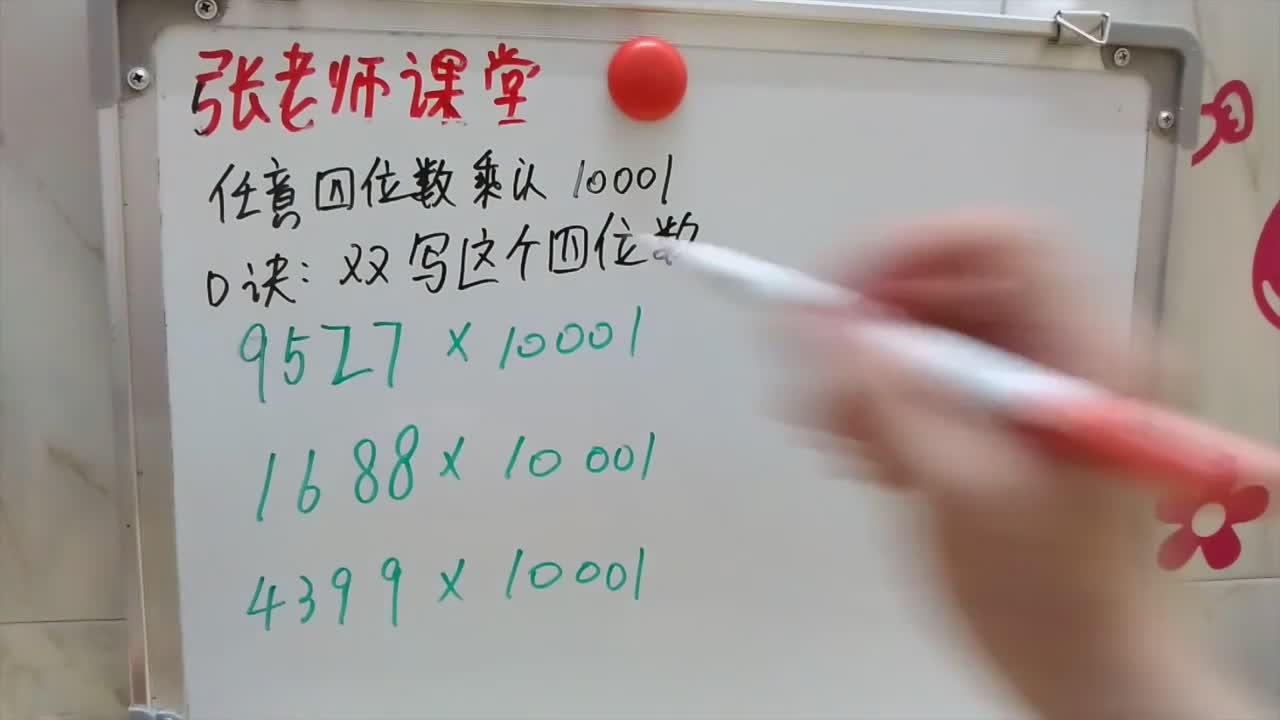 张老师课堂
任意四位数乘认 10001
口诀：双写这个四位数
9527 × 10001
1688 × 10001
4399 × 10001